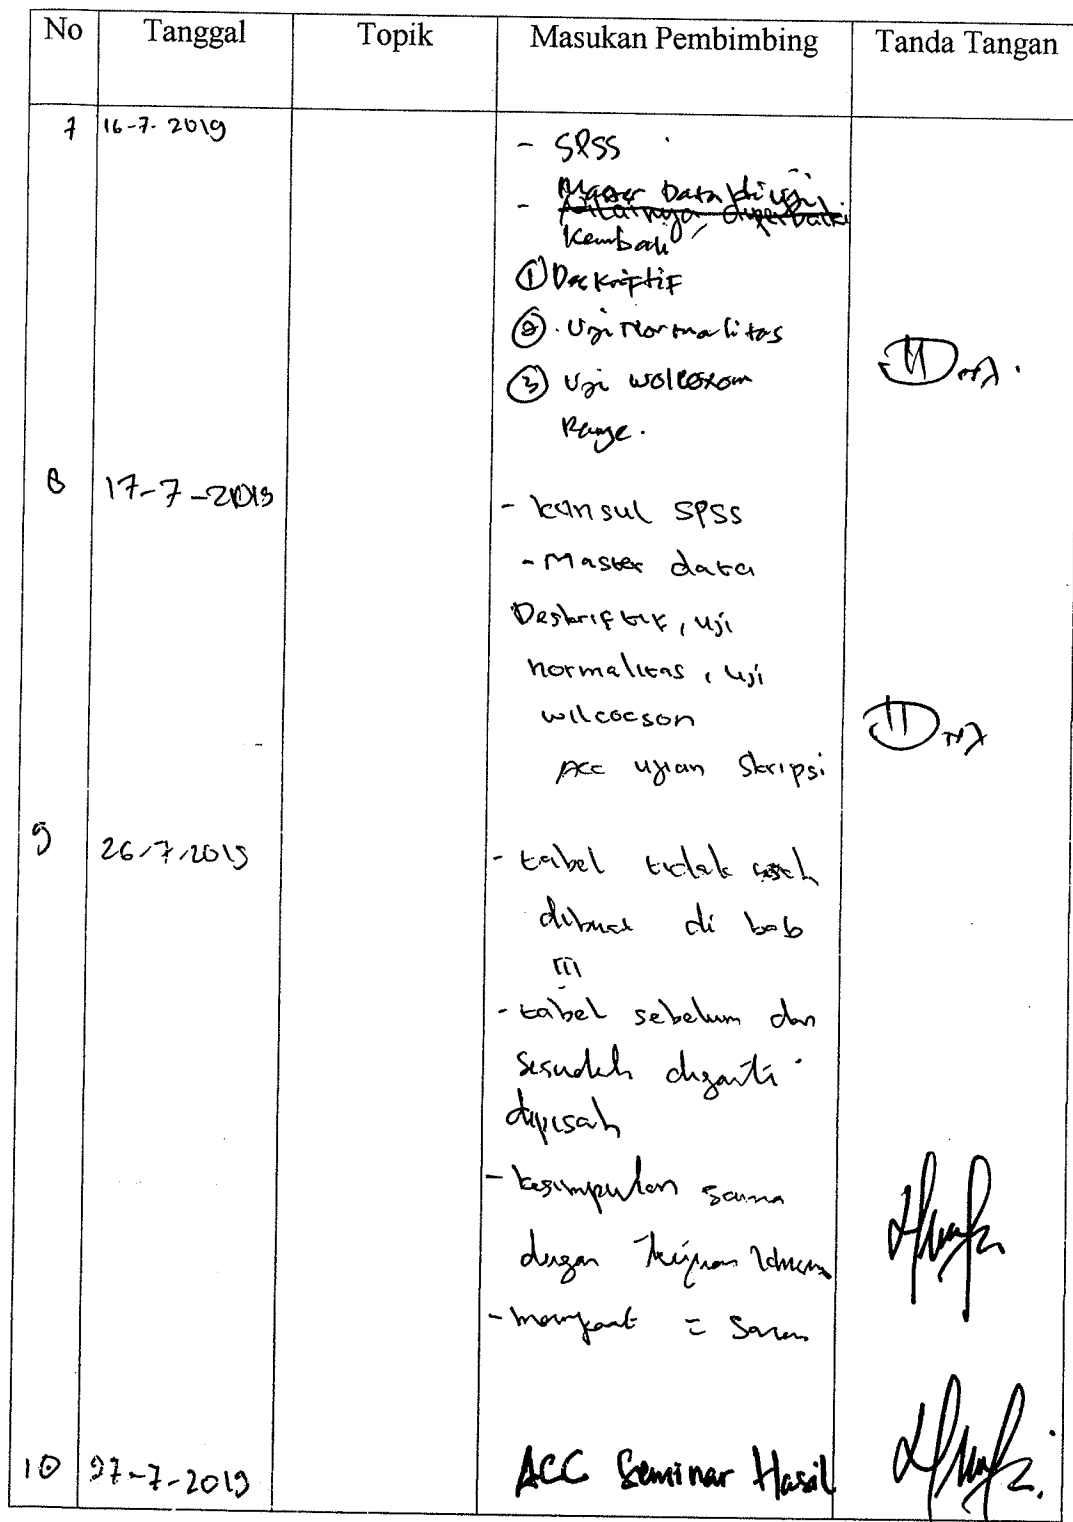 No Tanggal Topik Masukan Pembimbing Tanda Tangan
7 16-7-2019 - SPSS
- Master Data diuji
Nilainya diperbaiki
Kembali
① Deskriptif
② Uji Normalitas
③ Uji Wolcoxom
Range.
8 17-7-2019 - konsul SPSS
- Master data
Deskriptif, uji
normalitas, uji
wilcocson
Acc ujian Skripsi
9 26-7-2019 - tabel tidak usah
dibuat di bab
III
- tabel sebelum dan
Sesudah diganti
dipisah
- kesimpulan sama
dengan Tujuan khusus
- manfaat = Saran
10 27-7-2019 ACC Seminar Hasil